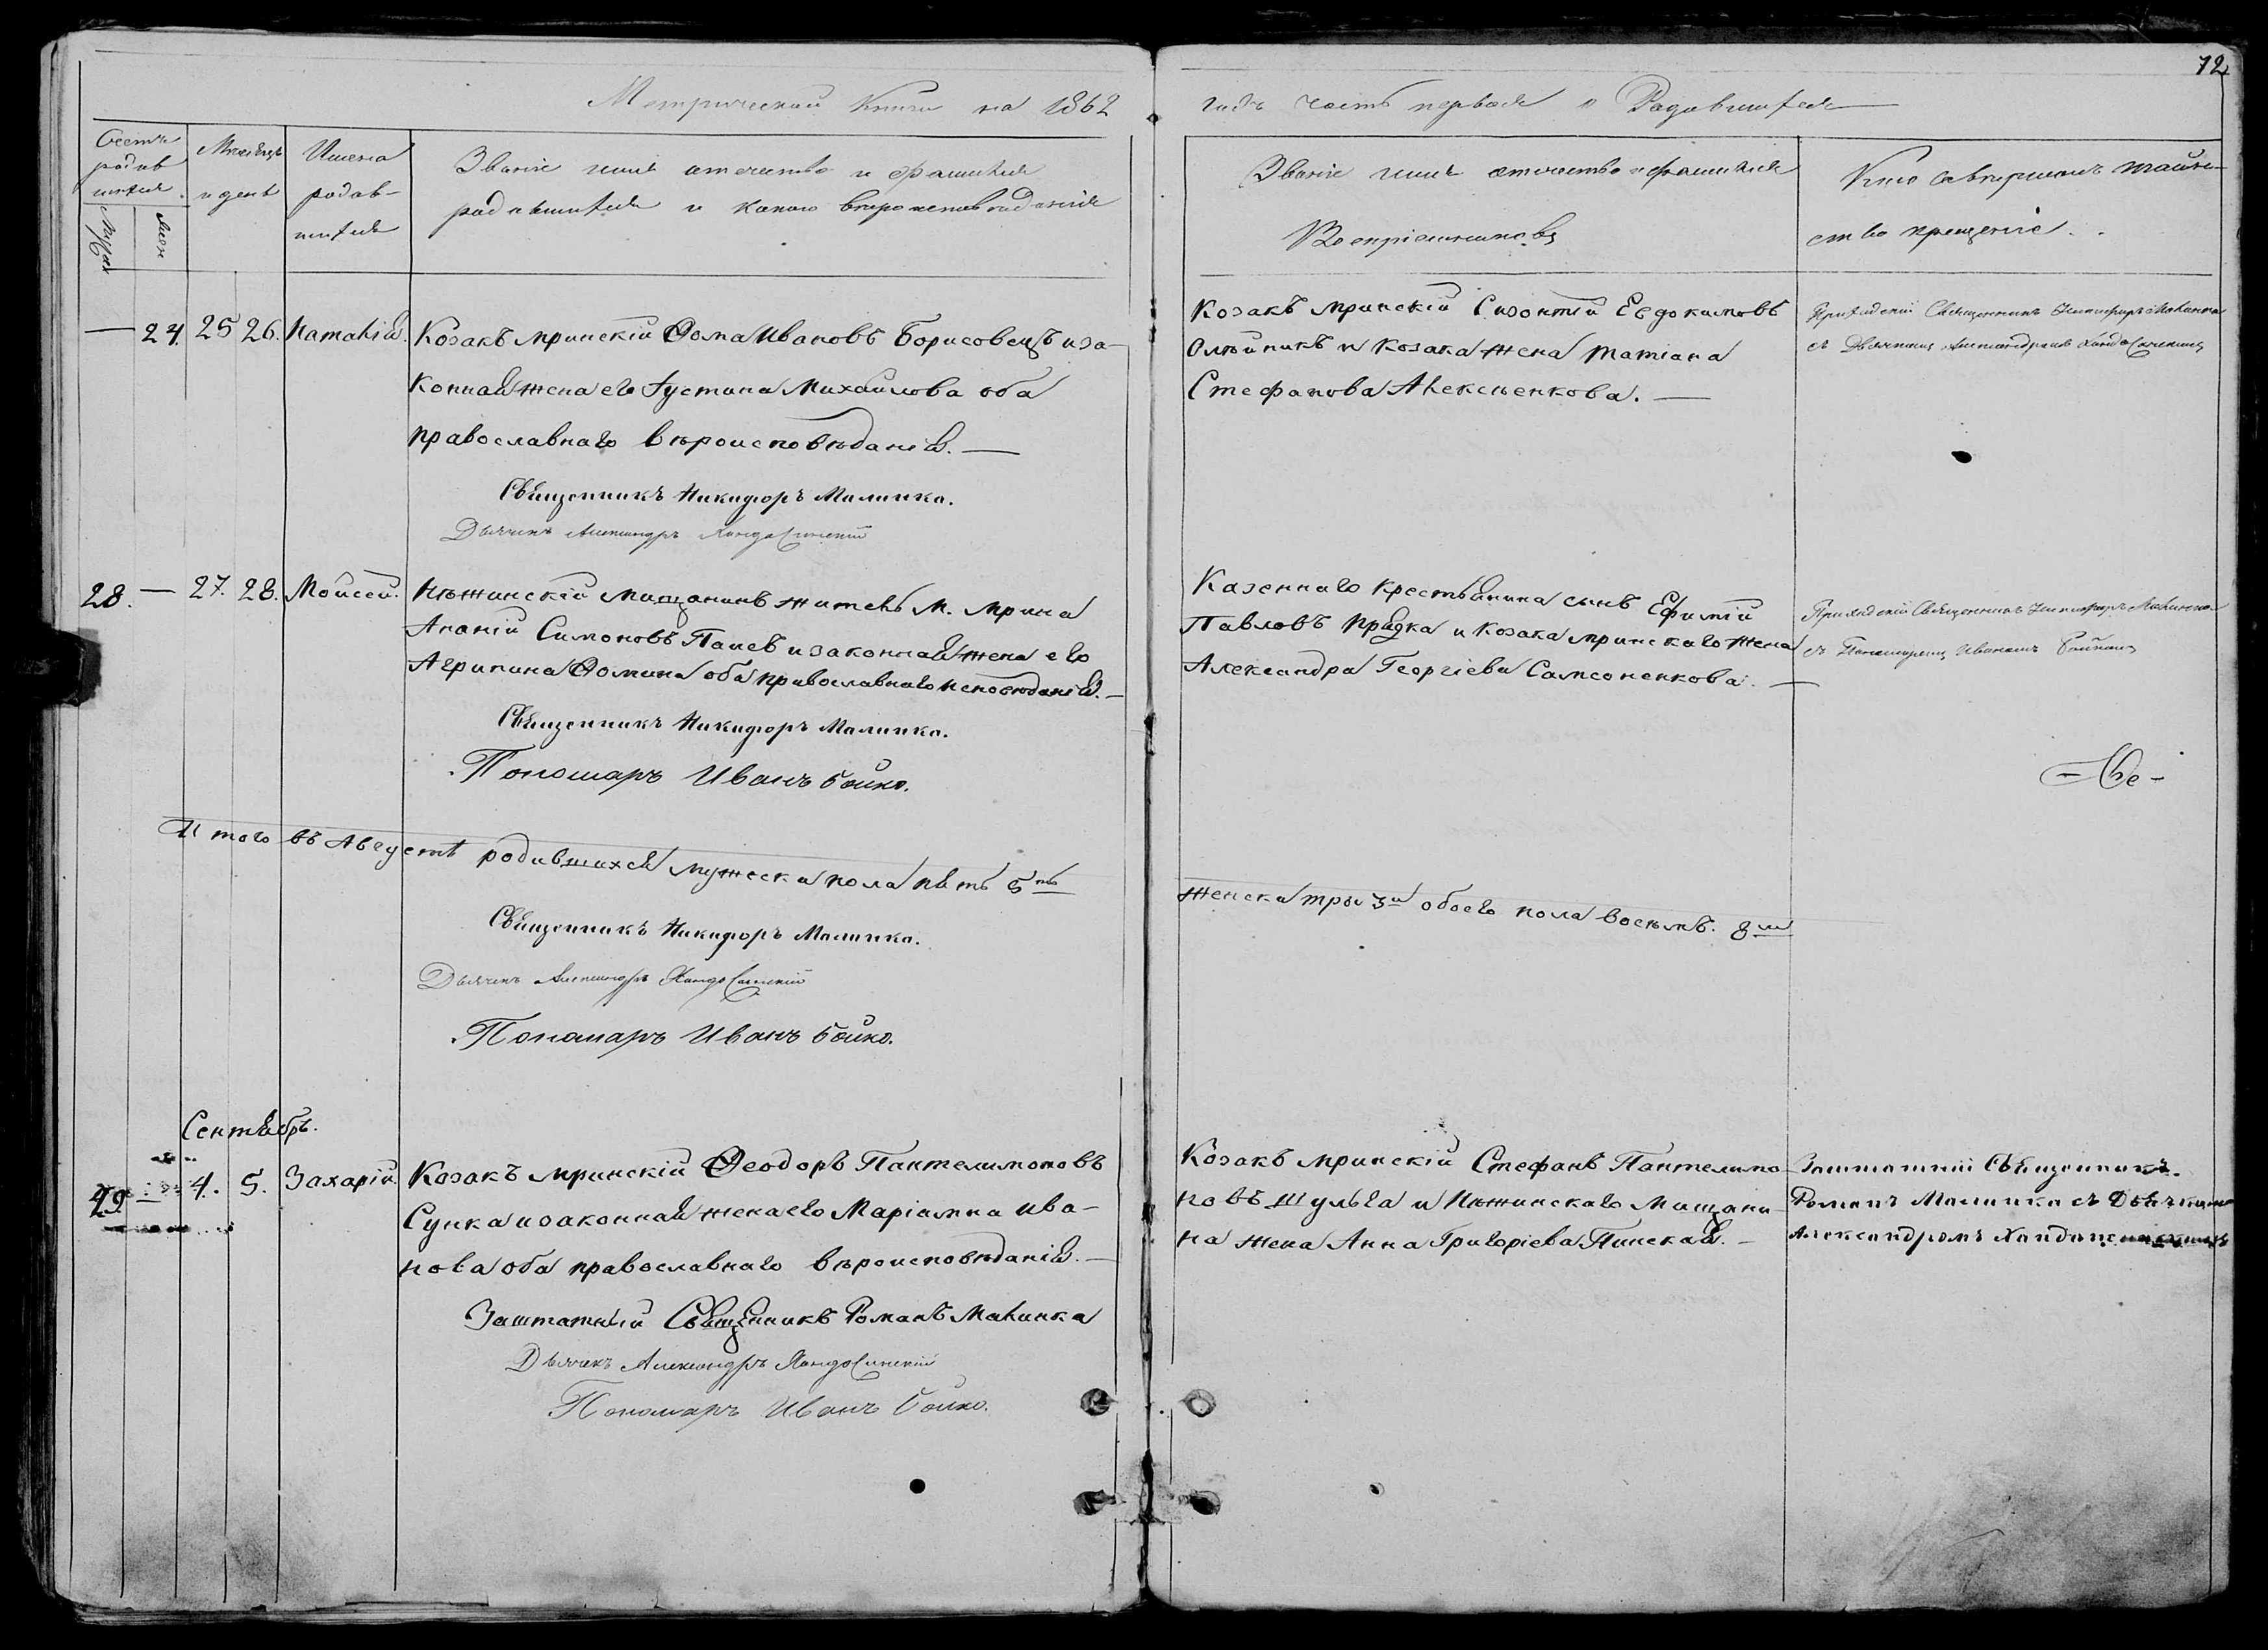 72
Метрической Книги на 1862
годъ часть первая о Родившихся
Счетъ родив шихся.
Муж
Жен
Мѣсяцъ и день
Имена родив- шихся
Званіе имя отчество и фамилія
родившихся и какого вѣроисповѣданія
Званіе имя отчество и фамилія
Воспріемниковъ
Кто совершалъ таин-
ство крещенія.
— 24. 25 26. Наталія.
Козакъ мринскій Ѳома Ивановъ Борисовецъ и за-
конная жена его Іустина Михайлова оба
православнаго вѣроисповѣданія. —
Священникъ Никифоръ Малинка.
Дьячекъ Александръ
Козакъ мринскій Сизонтій Евдокимовъ
Олѣйникъ и козака жена Татіана
Стефанова Алексѣенкова. —
Приходскій Священникъ Никифоръ Малинка
съ Дьячкомъ Александромъ
28. — 27. 28. Мойсей.
Нѣжинскій мищанинъ житель м. Мрина
Ананій Симоновъ Панев и законная жена его
Агрипина Ѳомина оба православнаго исповѣданія. —
Священникъ Никифоръ Малинка.
Пономаръ Иванъ Бойко.
Казеннаго крестьянина сынъ Ефимій
Павловъ Прядка и козака мринскаго жена
Александра Георгіева Самсоненкова. —
Приходскій Священникъ Никифоръ Малинка
съ Пономаремъ Иваномъ Бойкомъ
Итого въ Августѣ родившихся мужеска пола пять 5ть
женска три 3и обоего пола восемъ. 8м
Священникъ Никифоръ Малинка.
Дьячекъ Александръ
Пономаръ Иванъ Бойко.
Сентябръ.
29 — 4. 5. Захарій.
Козакъ мринскій Ѳеодоръ Пантелимоновъ
Сучка и законная жена его Маріамна Ива-
нова оба православнаго вѣроисповѣданія. —
Заштатный Священникъ Романъ Малинка
Дьячекъ Александръ
Пономаръ Иванъ Бойко.
Козакъ мринскій Стефанъ Пантелимо-
новъ Шульга и Нѣжинскаго мищани-
на жена Анна Григоріева Пинская. —
Заштатній Священникъ
Романъ Малинка съ Дьячкомъ
Александромъ